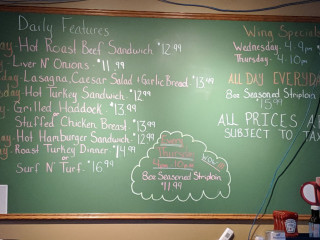 Daily Features
ay - Hot Roast Beef Sandwich - $12.99
ay - Liver N' Onions - $11.99
day - Lasagna, Caesar Salad & Garlic Bread $13.99
day - Hot Turkey Sandwich - $12.99
ay - Grilled Haddock - $13.99
Stuffed Chicken Breast - $13.99
ay - Hot Hamburger Sandwich - $12.99
y - Roast Turkey Dinner - $14.99
or
Surf N' Turf - $16.99
8oz Seasoned Striploin
$11.99
Wing Specials
Wednesday - 4 - 9pm
Thursday - 4 - 10pm
ALL DAY EVERYDAY
8oz Seasoned Striploin
15.99
ALL PRICES A
SUBJECT TO TAX